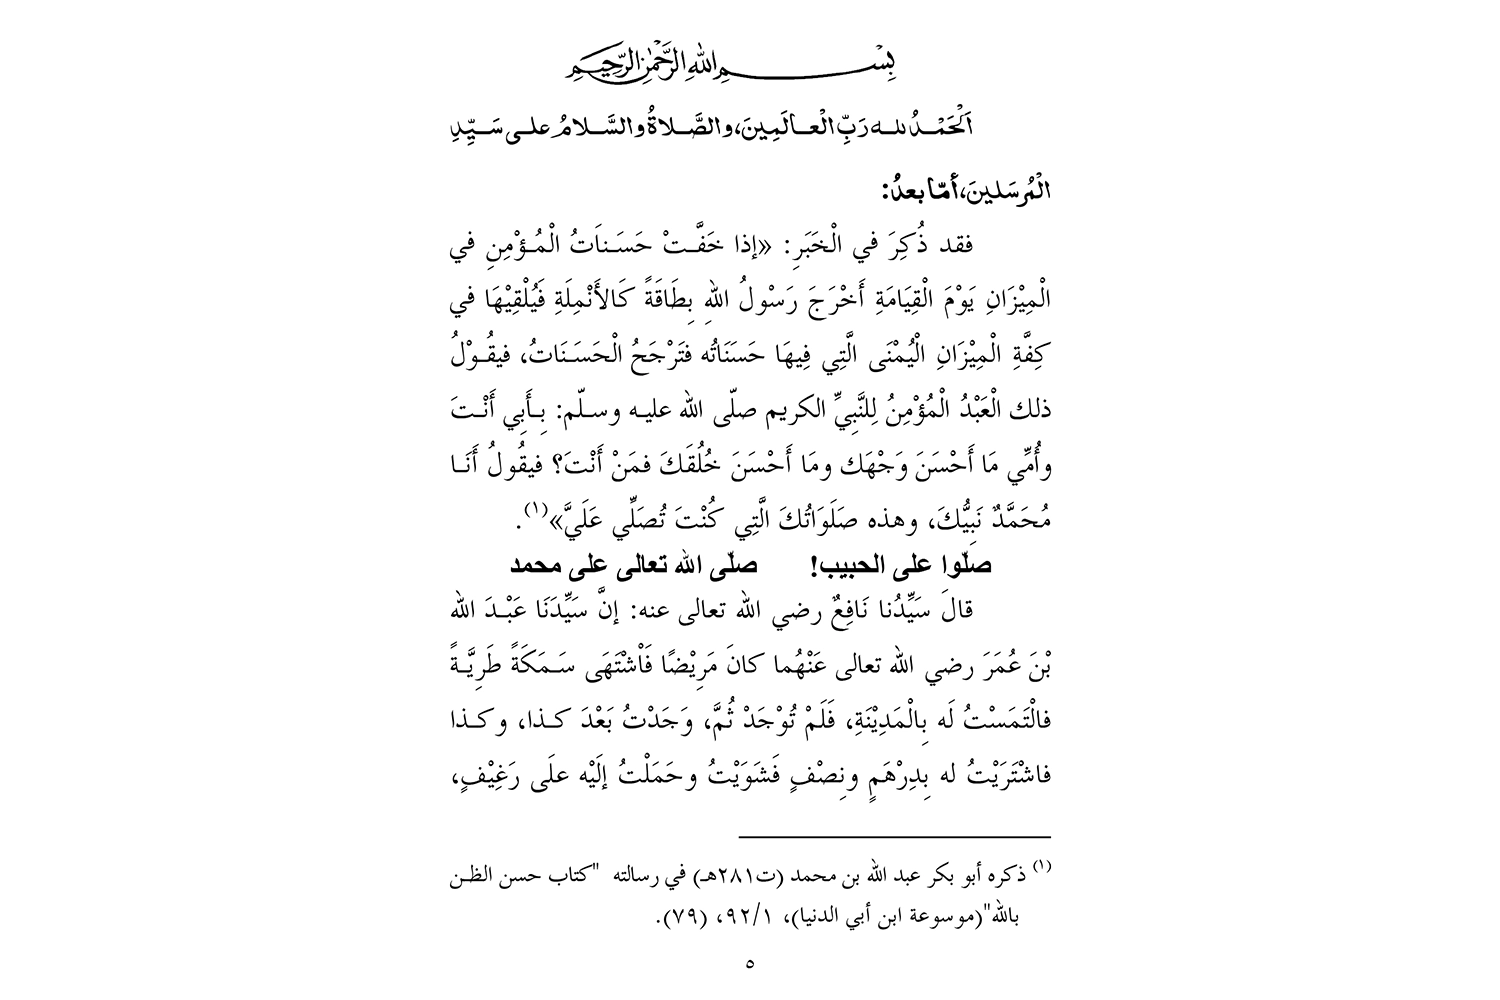 بِسْمِ اللهِ الرَّحْمٰنِ الرَّحِيْمِ
اَلْحَمْدُ لله رَبِّ الْعالَمِينَ، والصَّلاةُ والسَّلامُ على سَيِّدِ
الْمُرسَلينَ، أمّا بعدُ:
فقد ذُكِرَ في الْخَبَرِ: «إذا خَفَّتْ حَسَناَتُ الْمُؤْمِنِ في
الْمِيْزَانِ يَوْمَ الْقِيَامَةِ أَخْرَجَ رَسْولُ اللهِ بِطَاقَةً كَالأَنْمِلَةِ فَيُلْقِيْهَا في
كِفَّةِ الْمِيْزَانِ الْيُمْنَى الَّتِي فِيهَا حَسَنَاتُه فتَرْجَحُ الْحَسَنَاتُ، فيقُوْلُ
ذلك الْعَبْدُ الْمُؤْمِنُ لِلنَّبِيِّ الكريم صلّى الله عليه وسلّم: بِأَبِي أَنْتَ
وأُمِّي مَا أَحْسَنَ وَجْهَك ومَا أَحْسَنَ خُلُقَكَ فمَنْ أَنْتَ؟ فيقُولُ أَنَا
مُحَمَّدٌ نَبِيُّكَ، وهذه صَلَوَاتُكَ الَّتِي كُنْتَ تُصَلِّي عَلَيَّ»(١).
صلّوا على الحبيب! صلّى الله تعالى على محمد
قالَ سَيِّدُنا نَافِعٌ رضي الله تعالى عنه: إنَّ سَيِّدَنَا عَبْدَ الله
بْنَ عُمَرَ رضي الله تعالى عَنْهُما كانَ مَرِيْضًا فَاْشْتَهَى سَمَكَةً طَرِيَّةً
فالْتَمَسْتُ لَه بِالْمَدِيْنَةِ، فَلَمْ تُوْجَدْ ثُمَّ، وَجَدْتُ بَعْدَ كذا، وكذا
فاشْتَرَيْتُ له بِدِرْهَمٍ ونِصْفٍ فَشَوَيْتُ وحَمَلْتُ إلَيْه علَى رَغِيْفٍ،
(١) ذكره أبو بكر عبد الله بن محمد (ت٢٨١هـ) في رسالته "كتاب حسن الظن
بالله"(موسوعة ابن أبي الدنيا)، ٩٢/١، (٧٩).
٥